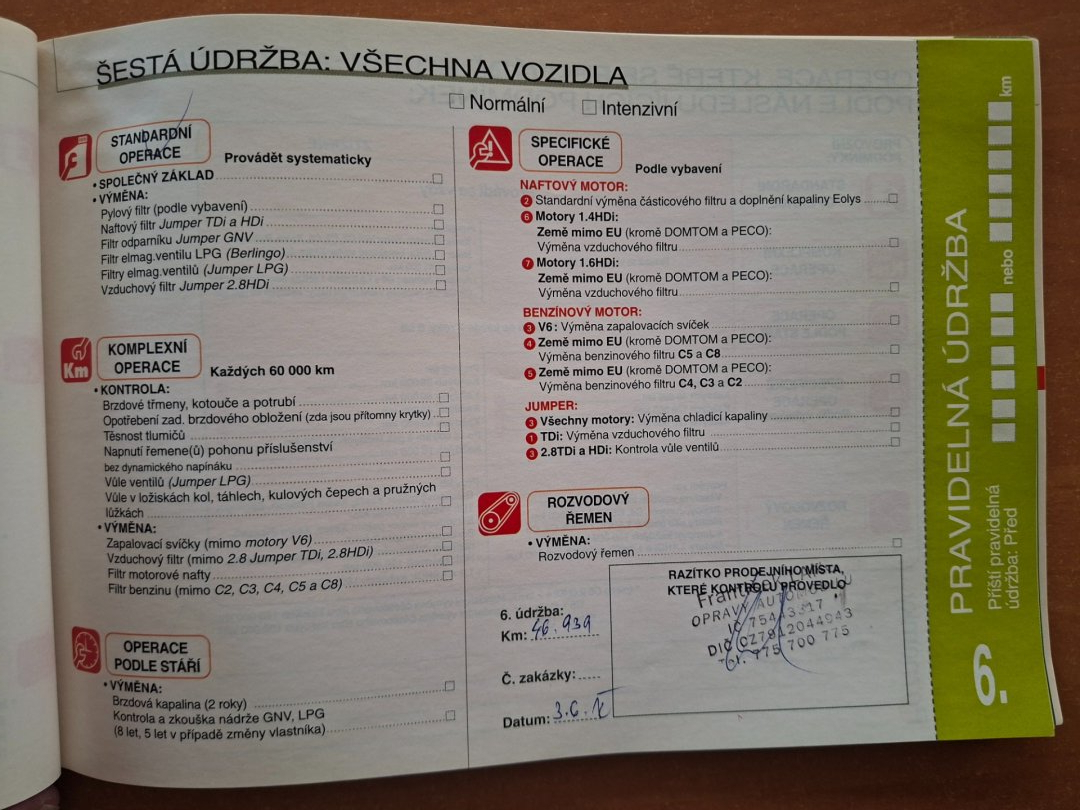 ŠESTÁ ÚDRŽBA: VŠECHNA VOZIDLA
Normální
Intenzivní
STANDARDNÍ
OPERACE
Provádět systematicky
• SPOLEČNÝ ZÁKLAD
• VÝMĚNA:
Pylový filtr (podle vybavení)
Naftový filtr Jumper TDi a HDi
Filtr odparníku Jumper GNV
Filtr elmag.ventilu LPG (Berlingo)
Filtry elmag.ventilů (Jumper LPG)
Vzduchový filtr Jumper 2.8HDi
Km
KOMPLEXNÍ
OPERACE
Každých 60 000 km
• KONTROLA:
Brzdové třmeny, kotouče a potrubí
Opotřebení zad. brzdového obložení (zda jsou přítomny krytky)
Těsnost tlumičů
Napnutí řemene(ů) pohonu příslušenství
bez dynamického napínáku
Vůle ventilů (Jumper LPG)
Vůle v ložiskách kol, táhlech, kulových čepech a pružných
lůžkách
• VÝMĚNA:
Zapalovací svíčky (mimo motory V6)
Vzduchový filtr (mimo 2.8 Jumper TDi, 2.8HDi)
Filtr motorové nafty
Filtr benzinu (mimo C2, C3, C4, C5 a C8)
OPERACE
PODLE STÁŘÍ
• VÝMĚNA:
Brzdová kapalina (2 roky)
Kontrola a zkouška nádrže GNV, LPG
(8 let, 5 let v případě změny vlastníka)
SPECIFICKÉ
OPERACE
Podle vybavení
NAFTOVÝ MOTOR:
2 Standardní výměna částicového filtru a doplnění kapaliny Eolys
6 Motory 1.4HDi:
Země mimo EU (kromě DOMTOM a PECO):
Výměna vzduchového filtru
7 Motory 1.6HDi:
Země mimo EU (kromě DOMTOM a PECO):
Výměna vzduchového filtru
BENZÍNOVÝ MOTOR:
3 V6: Výměna zapalovacích svíček
4 Země mimo EU (kromě DOMTOM a PECO):
Výměna benzinového filtru C5 a C8
5 Země mimo EU (kromě DOMTOM a PECO):
Výměna benzinového filtru C4, C3 a C2
JUMPER:
3 Všechny motory: Výměna chladicí kapaliny
1 TDi: Výměna vzduchového filtru
3 2.8TDi a HDi: Kontrola vůle ventilů
ROZVODOVÝ
ŘEMEN
• VÝMĚNA:
Rozvodový řemen
6. údržba:
Km: 46.939
Č. zakázky:
Datum: 3.6.
RAZÍTKO PRODEJNÍHO MÍSTA,
KTERÉ KONTROLU PROVEDLO
OPRAVY AUTOMOBILŮ
IČ 75443317
DIČ CZ7912044943
Tel. 775 700 775
6. PRAVIDELNÁ ÚDRŽBA
Příští pravidelná
údržba: Před
nebo
km